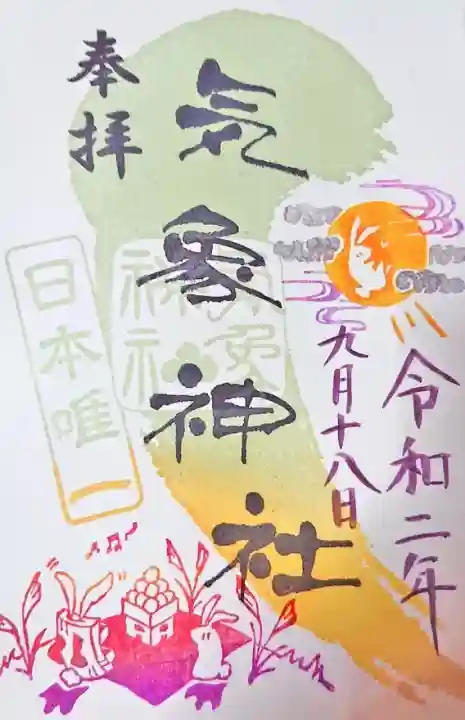 令和二年
九月十八日
気象神社
奉拝
日本唯一